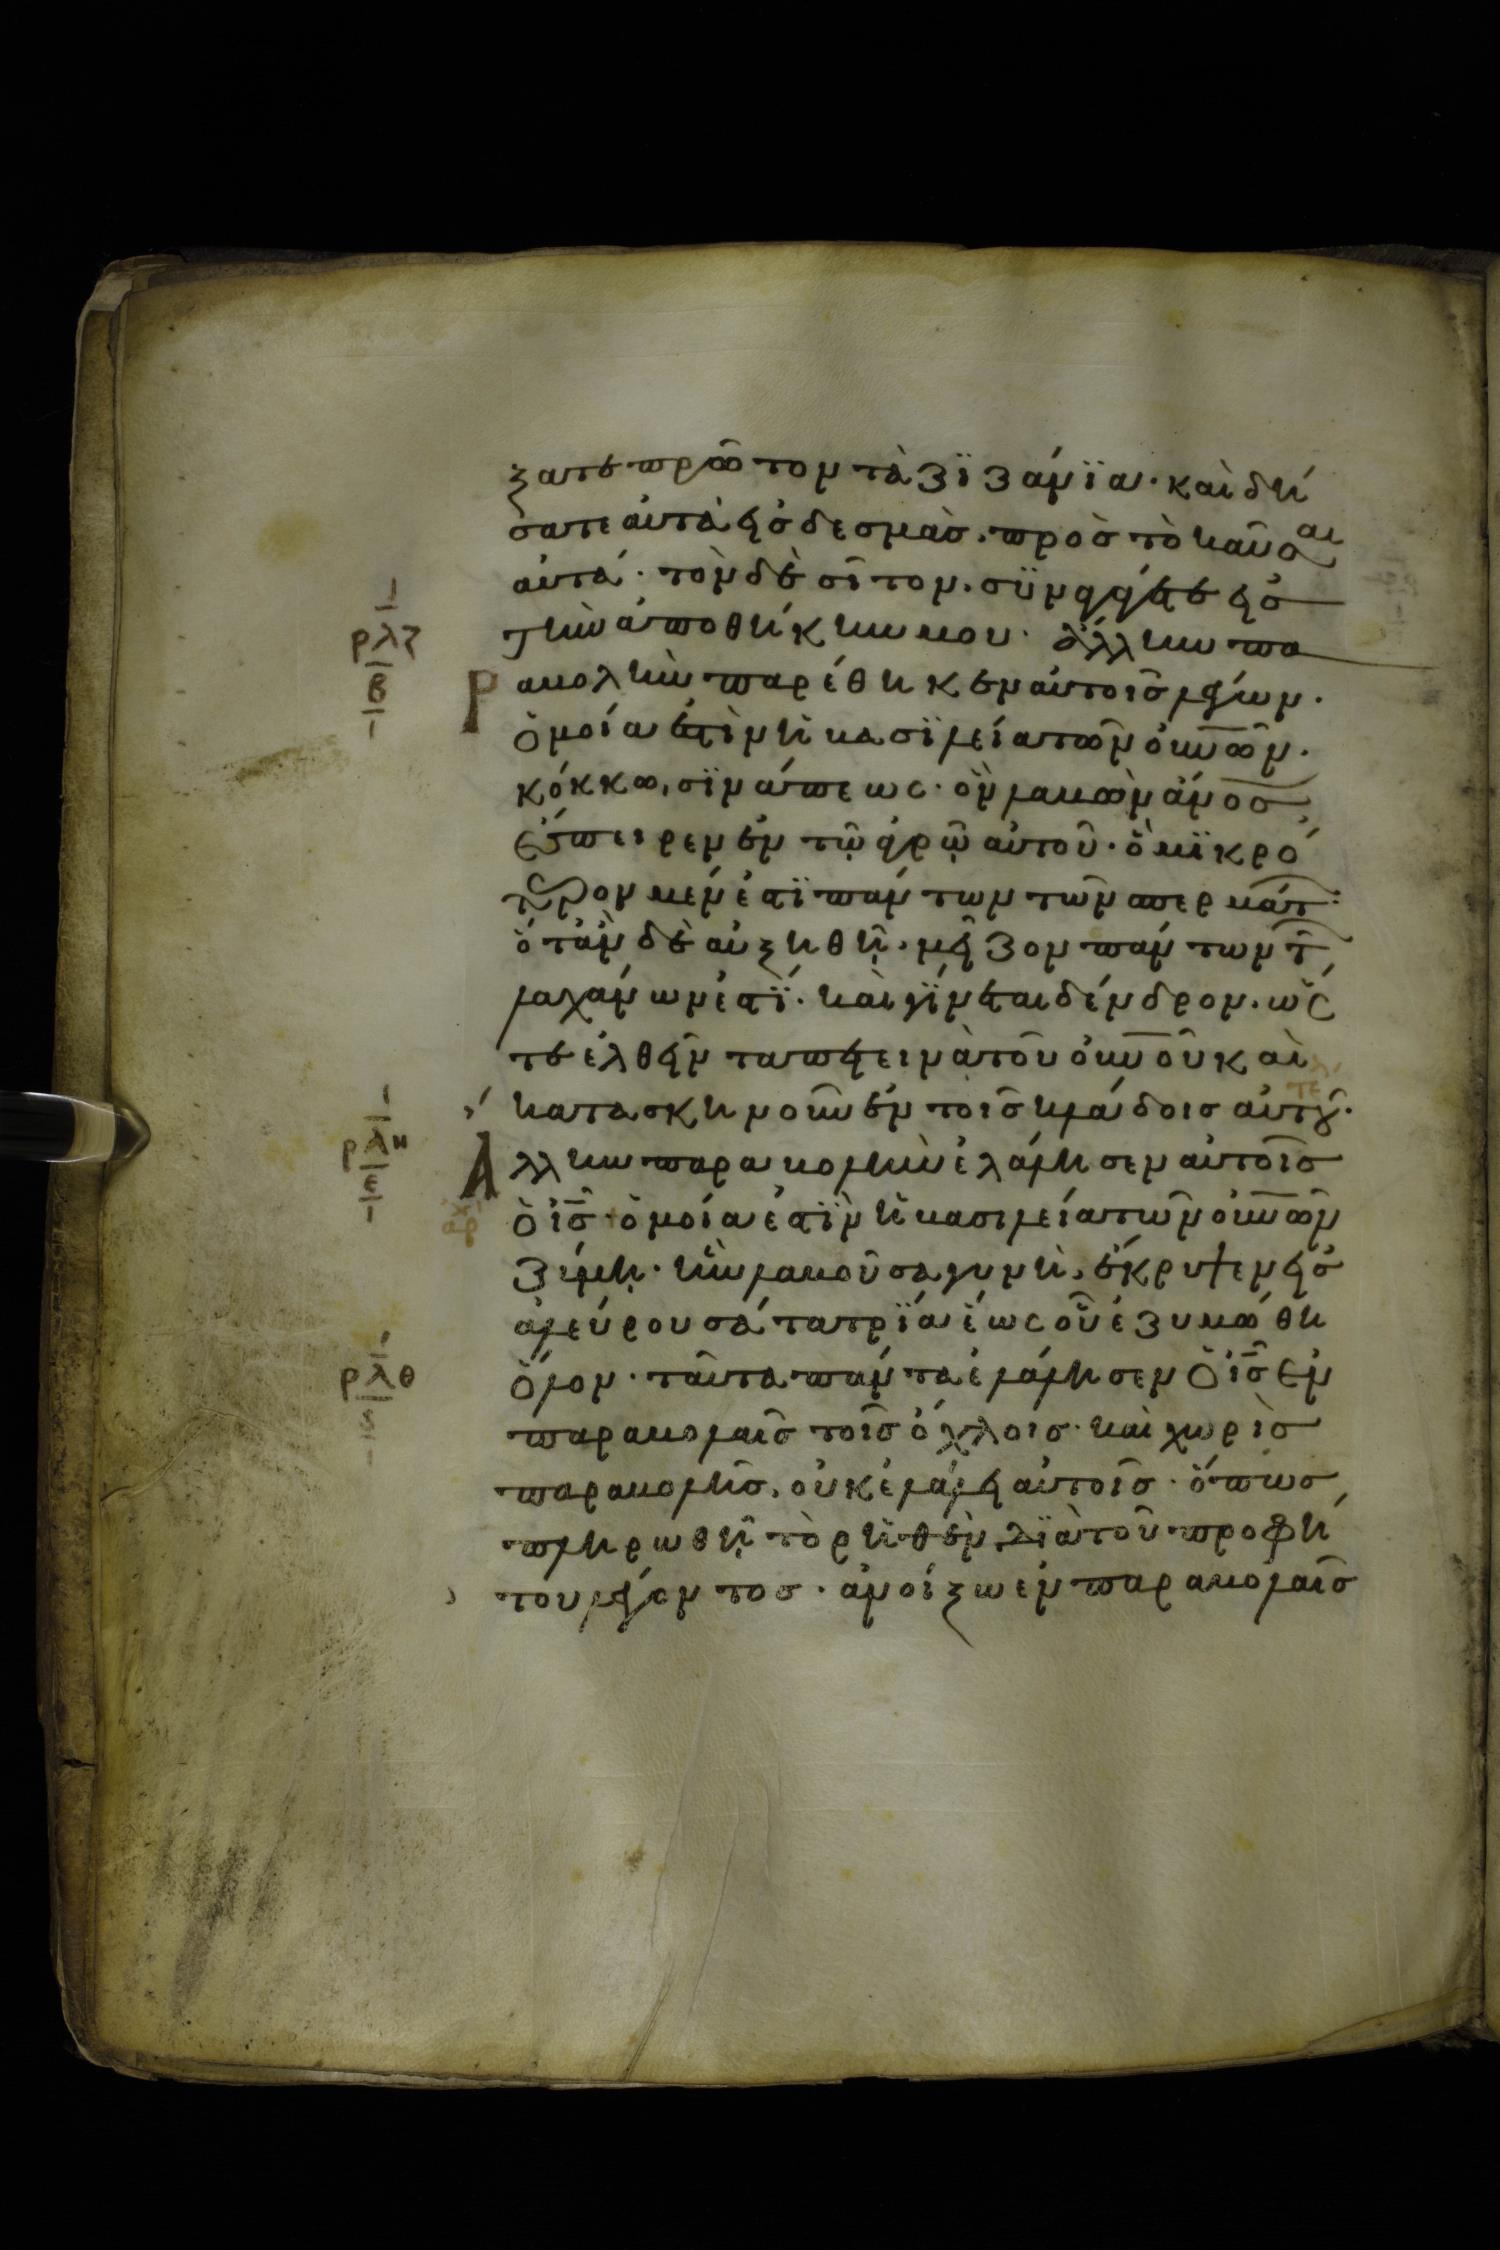 ξατε πρῶτον τὰ ζϊζάνϊα· καὶ δή
σατε αὐτὰ εἰς δεσμὰς· πρὸς τὸ καῦσαι
αὐτά· τὸν δὲ σῖτον, σϋναγάγετε εἰς
τὴν ἀποθήκην μου· ἄλλην πα
Ραβολὴν παρέθηκεν αὐτοῖς λέγων·
ὁμοία ἐστὶν ἡ βασϊλεία τῶν οὐνῶν·
κόκκω, σϊνάπεως· ὃν λαβὼν ἄνος
ἔσπειρεν ἐν τῷ ἀγρῷ αὐτοῦ· ὃ μϊκρό
τερον μέν ἐστϊ πάντων τῶν σπερμάτ·
ὅταν δὲ αὐξηθῇ· μεῖζον πάντων τῶν
λαχάνων ἐστϊ· καὶ γϊνεται δένδρον· ὥς
τε ἐλθεῖν τα πετεινὰ τοῦ οὐνοῦ καὶ
κατασκηνοῦν ἐν τοῖς κλάδοις αὐτοῦ·
Αλλην παραβολὴν ἐλάλησεν αὐτοῖς
ὁ ἰς· ὁμοία ἐστϊν ἡ βασιλεία τῶν οὐνῶν
ζύμη· ἣν λαβοῦσα γυνὴ, ἔκρυψεν εἰς
ἀλεύρου σάτα τρϊά· ἕως οὗ ἐζυμώθη
ὅλον· ταῦτα πάντα ἐλάλησεν ὁ ἰς ἐν
παραβολαῖς τοῖς ὄχλοις· καὶ χωρὶς
παραβολῆς, οὐκ ἐλάλει αὐτοῖς· ὅπως
πληρωθῇ τὸ ρηθὲν δϊὰ τοῦ προφή
του λέγοντος· ἀνοίξω ἐν παραβολαῖς
ρλζ
β
ρλη
ε
ρλθ
ς
τελ
αρχ